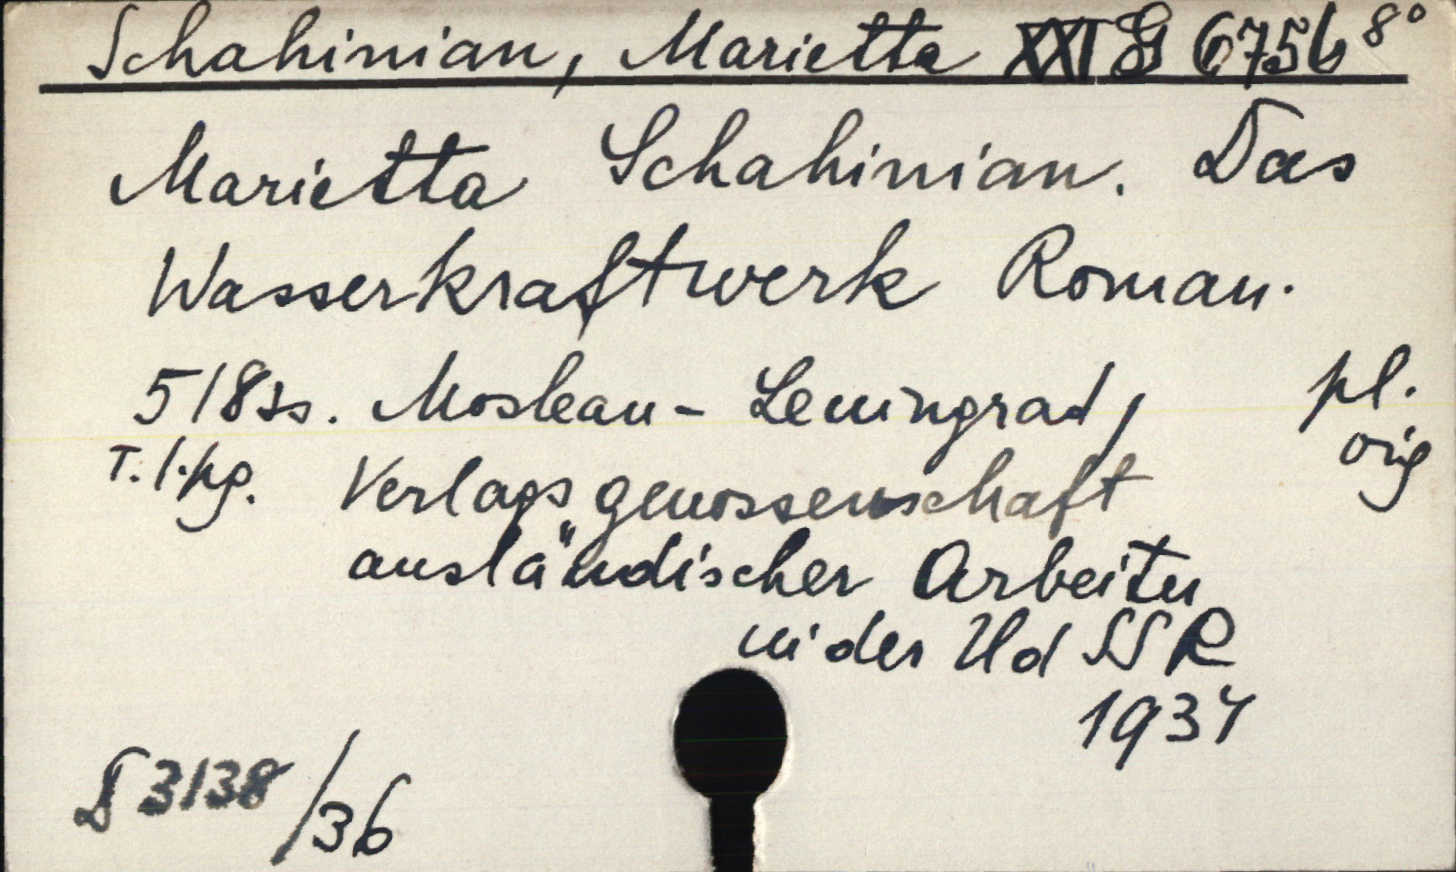 Schahinian, Marietta XXI G 6756 8°
Marietta Schahinian. Das
Wasserkraftwerk Roman.
518 Ss. Moskau - Leningrad, pl.
T. 1.pg. Verlagsgenossenschaft orig
ausländischer Arbeiter
in der UdSSR
1934
D 3138/36